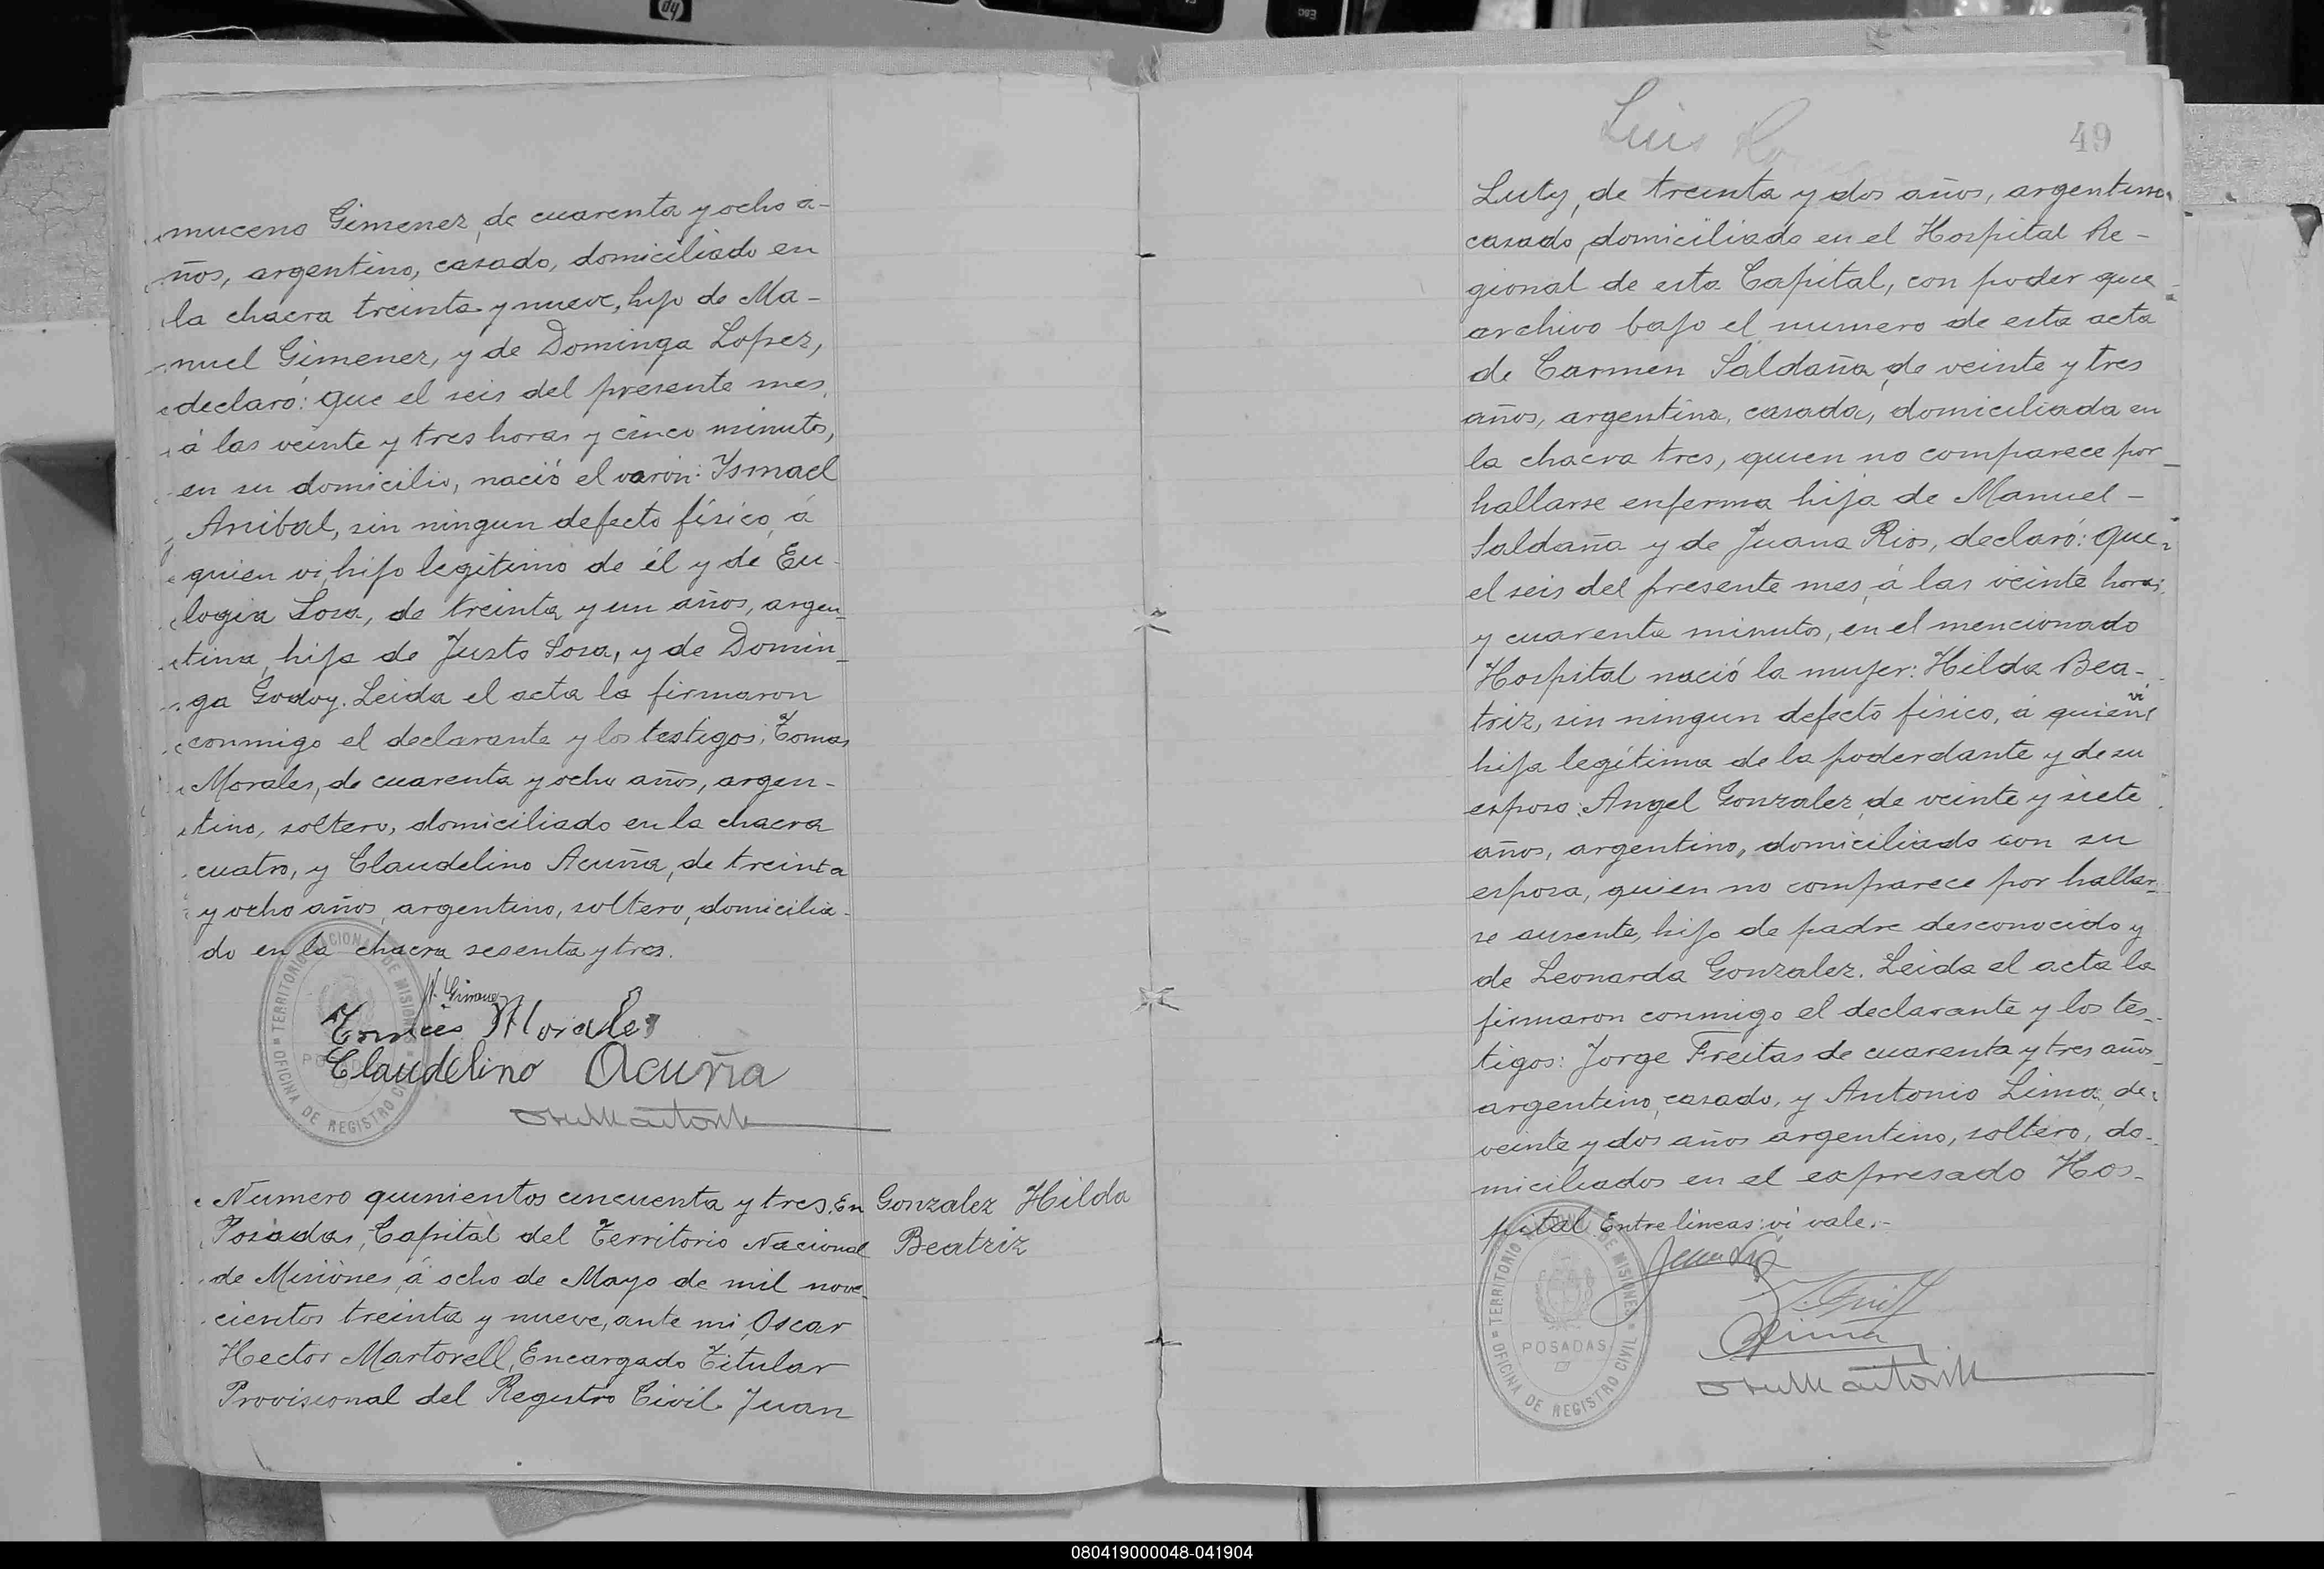 muceno Gimenez, de cuarenta y ocho a-
ños, argentino, casado, domiciliado en
la chacra treinta y nueve, hijo de Ma-
nuel Gimenez, y de Dominga Lopez,
declaró: que el seis del presente mes,
á las veinte y tres horas y cinco minutos,
en su domicilio, nació el varón: Ysmael
Anibal, sin ningun defecto físico, á
quien vi, hijo legítimo de él y de Eu-
logia Sosa, de treinta y un años, argen-
tina, hija de Justo Sosa, y de Domin-
ga Godoy. Leida el acta la firmaron
conmigo el declarante y los testigos: Tomas
Morales, de cuarenta y ocho años, argen-
tino, soltero, domiciliado en la chacra
cuatro, y Claudelino Acuña, de treinta
y ocho años, argentino, soltero, domicilia-
do en la chacra sesenta y tres.
N. Gimenez
Morales
Claudelino Acuña
TERRITORIO NACIONAL DE MISIONES
POSADAS
OFICINA DE REGISTRO CIVIL
Numero quinientos cincuenta y tres. En
Posadas, Capital del Territorio Nacional
de Misiones, á ocho de Mayo de mil nove-
cientos treinta y nueve, ante mi, Oscar
Hector Martorell, Encargado Titular
Provisional del Registro Civil. Juan
Gonzalez Hilda
Beatriz
Luis
49
Luty, de treinta y dos años, argentino,
casado, domiciliado en el Hospital Re-
gional de esta Capital, con poder que
archivo bajo el numero de esta acta
de Carmen Saldaña, de veinte y tres
años, argentina, casada, domiciliada en
la chacra tres, quien no comparece por
hallarse enferma hija de Manuel -
Saldaña y de Juana Rios, declaró: que
el seis del presente mes, á las veinte horas
y cuarenta minutos, en el mencionado
Hospital nació la mujer: Hilda Bea-
triz, sin ningun defecto físico, á quien vi
hija legítima de la poderdante y de su
esposo: Angel Gonzalez, de veinte y siete
años, argentino, domiciliado con su
esposa, quien no comparece por hallar-
se ausente, hijo de padre desconocido y
de Leonarda Gonzalez. Leida el acta la
firmaron conmigo el declarante y los tes-
tigos: Jorge Freitas de cuarenta y tres años
argentino, casado, y Antonio Lima, de
veinte y dos años argentino, soltero, do-
miciliados en el expresado Hos-
pital. Entre lineas: vi vale.-
TERRITORIO NACIONAL DE MISIONES
POSADAS
OFICINA DE REGISTRO CIVIL
080419000048-041904